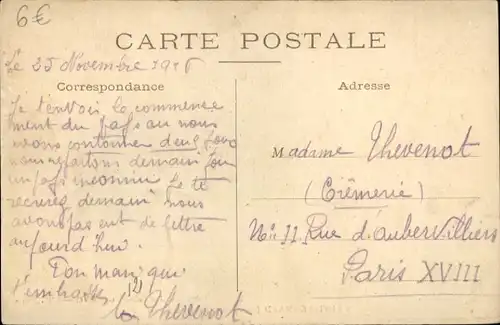 6€
CARTE POSTALE
Le 25 Novembre 1916
Correspondance
Je t'envoi le commence
ment du pays au nous
avons contonner deus
nous demain
un pays inconnu Je te
demain nous
avons pas eut de lettre
aujourd'hui.
Ton mari qui
t'embrasse
Thevenot
Adresse
Madame Thevenot
(Crêmerie)
No 11 Rue d'aubervilliers
Paris XVIII